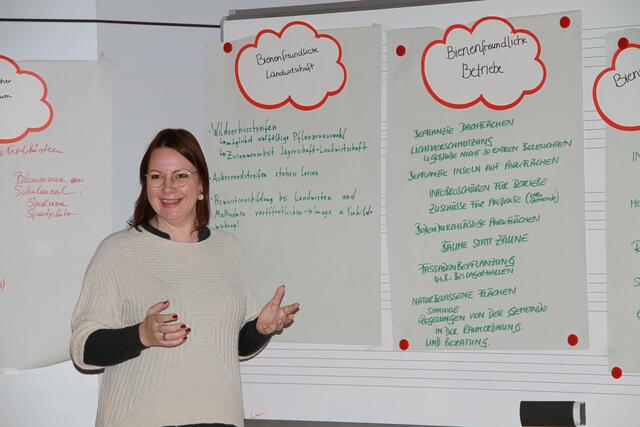 Bienenfreundliche
Landwirtschaft
· Wildverbissstreifen
↳ möglichst vielfältige Pflanzenauswahl
↳ Zusammenarbeit Jägerschaft-Landwirtschaft
· Ackerrandstreifen stehen lassen
· Bewusstseinsbildung bei Landwirten und
Maßnahmen veröffentlichen → Image & Vorbild-
wirkung!
Bienenfreundliche
Betriebe
BEPFLANZTE DACHFLÄCHEN
LICHTVERSCHMUTZUNG
↳ GEBÄUDE NICHT SO EXTREM BELEUCHTEN
BEPFLANZTE INSELN AUF PARKFLÄCHEN
INFOBROSCHÜREN FÜR BETRIEBE
ZUSCHÜSSE FÜR PROJEKTE
BODENDURCHLÄSSIGE PARKFLÄCHEN
BÄUME STATT ZÄUNE
FASSADENBEPFLANZUNG
z.B. BEI LAGERHALLEN
NATURBELASSENE FLÄCHEN
SINNVOLLE
REGELUNGEN VON DER GEMEINDE
IN DER RAUMORDNUNG
UND BERATUNG.